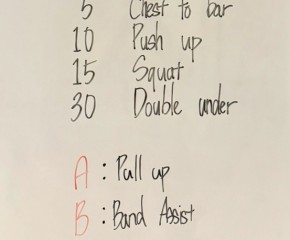 5 Chest to bar
10 Push up
15 Squat
30 Double under
A : Pull up
B : Band Assist